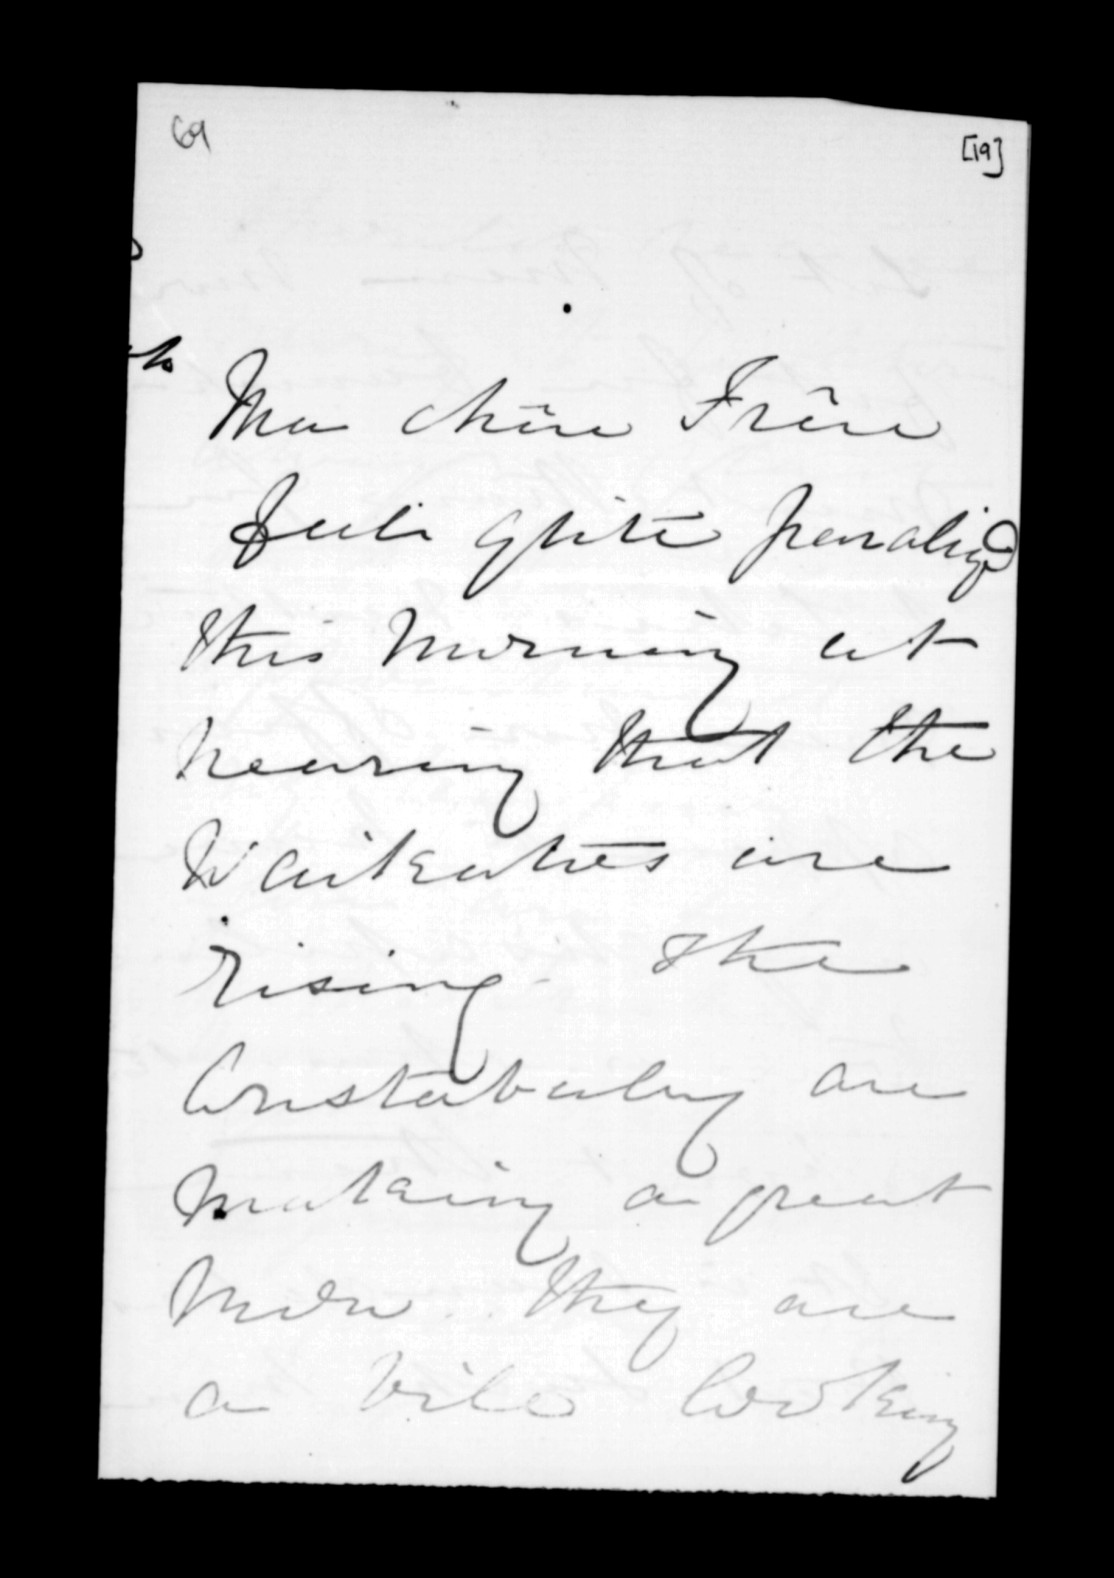 69
[19]
Ma chère Frère
Feels quite paralized
this Morning at
hearing that the
Waikatoes are
rising - The
Constabulry are
Making a great
Mown. They are
a vile looking